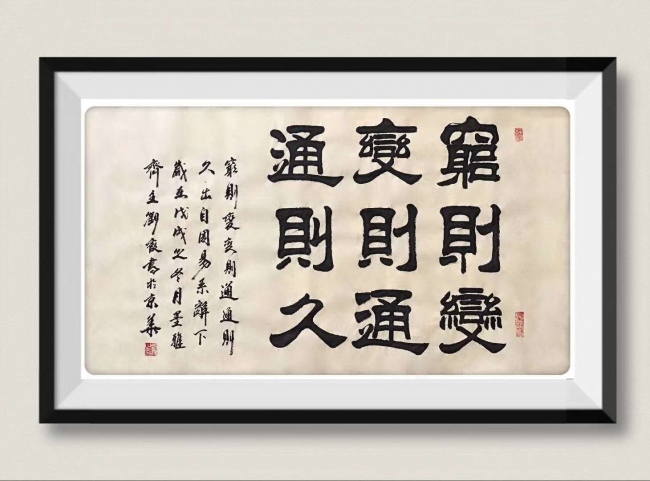 窮則變
變則通
通則久
窮則變变則通通則
久出自周易系辭下
歲在戊戌之冬月墨雅
齋主劉霞書於京華